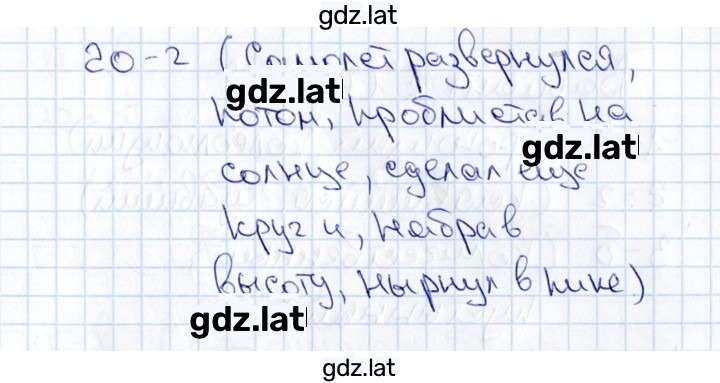 gdz.lat
20-2 (Самолет развернулся,
gdz.lat
потом, проблистав на
gdz.lat
солнце, сделал еще
круг и, набрав
высоту, нырнул в пике)
gdz.lat
gdz.lat